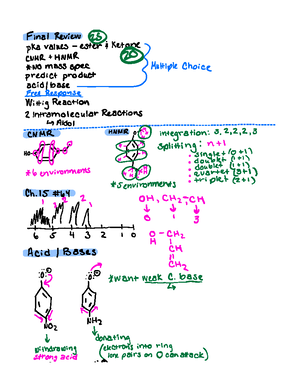 Final Review 25
pka values - ester & Ketone
CNMR + HNMR 20
*NO mass spec
predict product
Multiple Choice
acid/base
Free Response
Wittig Reaction
2 Intramolecular Reactions
↳ Aldol
CNMR
HNMR
integration: 3,2,2,2,3
splitting: n+1
• singlet (0+1)
• doublet (1+1)
• doublet (1+1)
• quartet (3+1)
• triplet (2+1)
HO
*6 environments
*5 environments
Ch.15 #64
OH, CH2, CH
0 1 3
6 5 4 3 2 1 0
O-CH2
H
CH
CH2
Acid / Bases
*want weak c. base
NO2
NH2
withdrawing
strong acid
donating
(electrons into ring
lone pairs on O can attack)